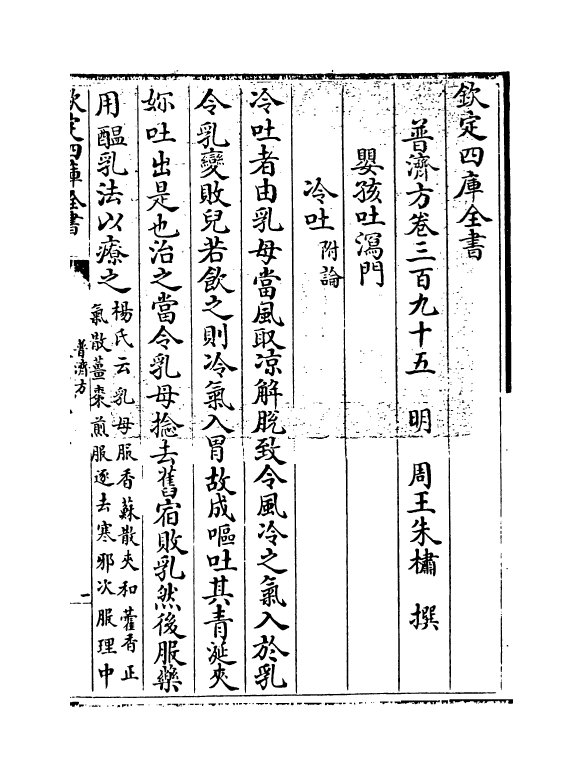 欽定四庫全書
普濟方卷三百九十五　明　周王朱橚　撰
嬰孩吐瀉門
冷吐附論
冷吐者由乳母當風取凉解脱致令風冷之氣入於乳
令乳變敗兒若飲之則冷氣入胃故成嘔吐其青涎夾
妳吐出是也治之當令乳母捻去舊宿敗乳然後服藥
用醖乳法以療之
楊氏云乳母服香蘇散夾和藿香正
氣散薑棗煎服逐去寒邪次服理中
欽定四庫全書
普濟方
一